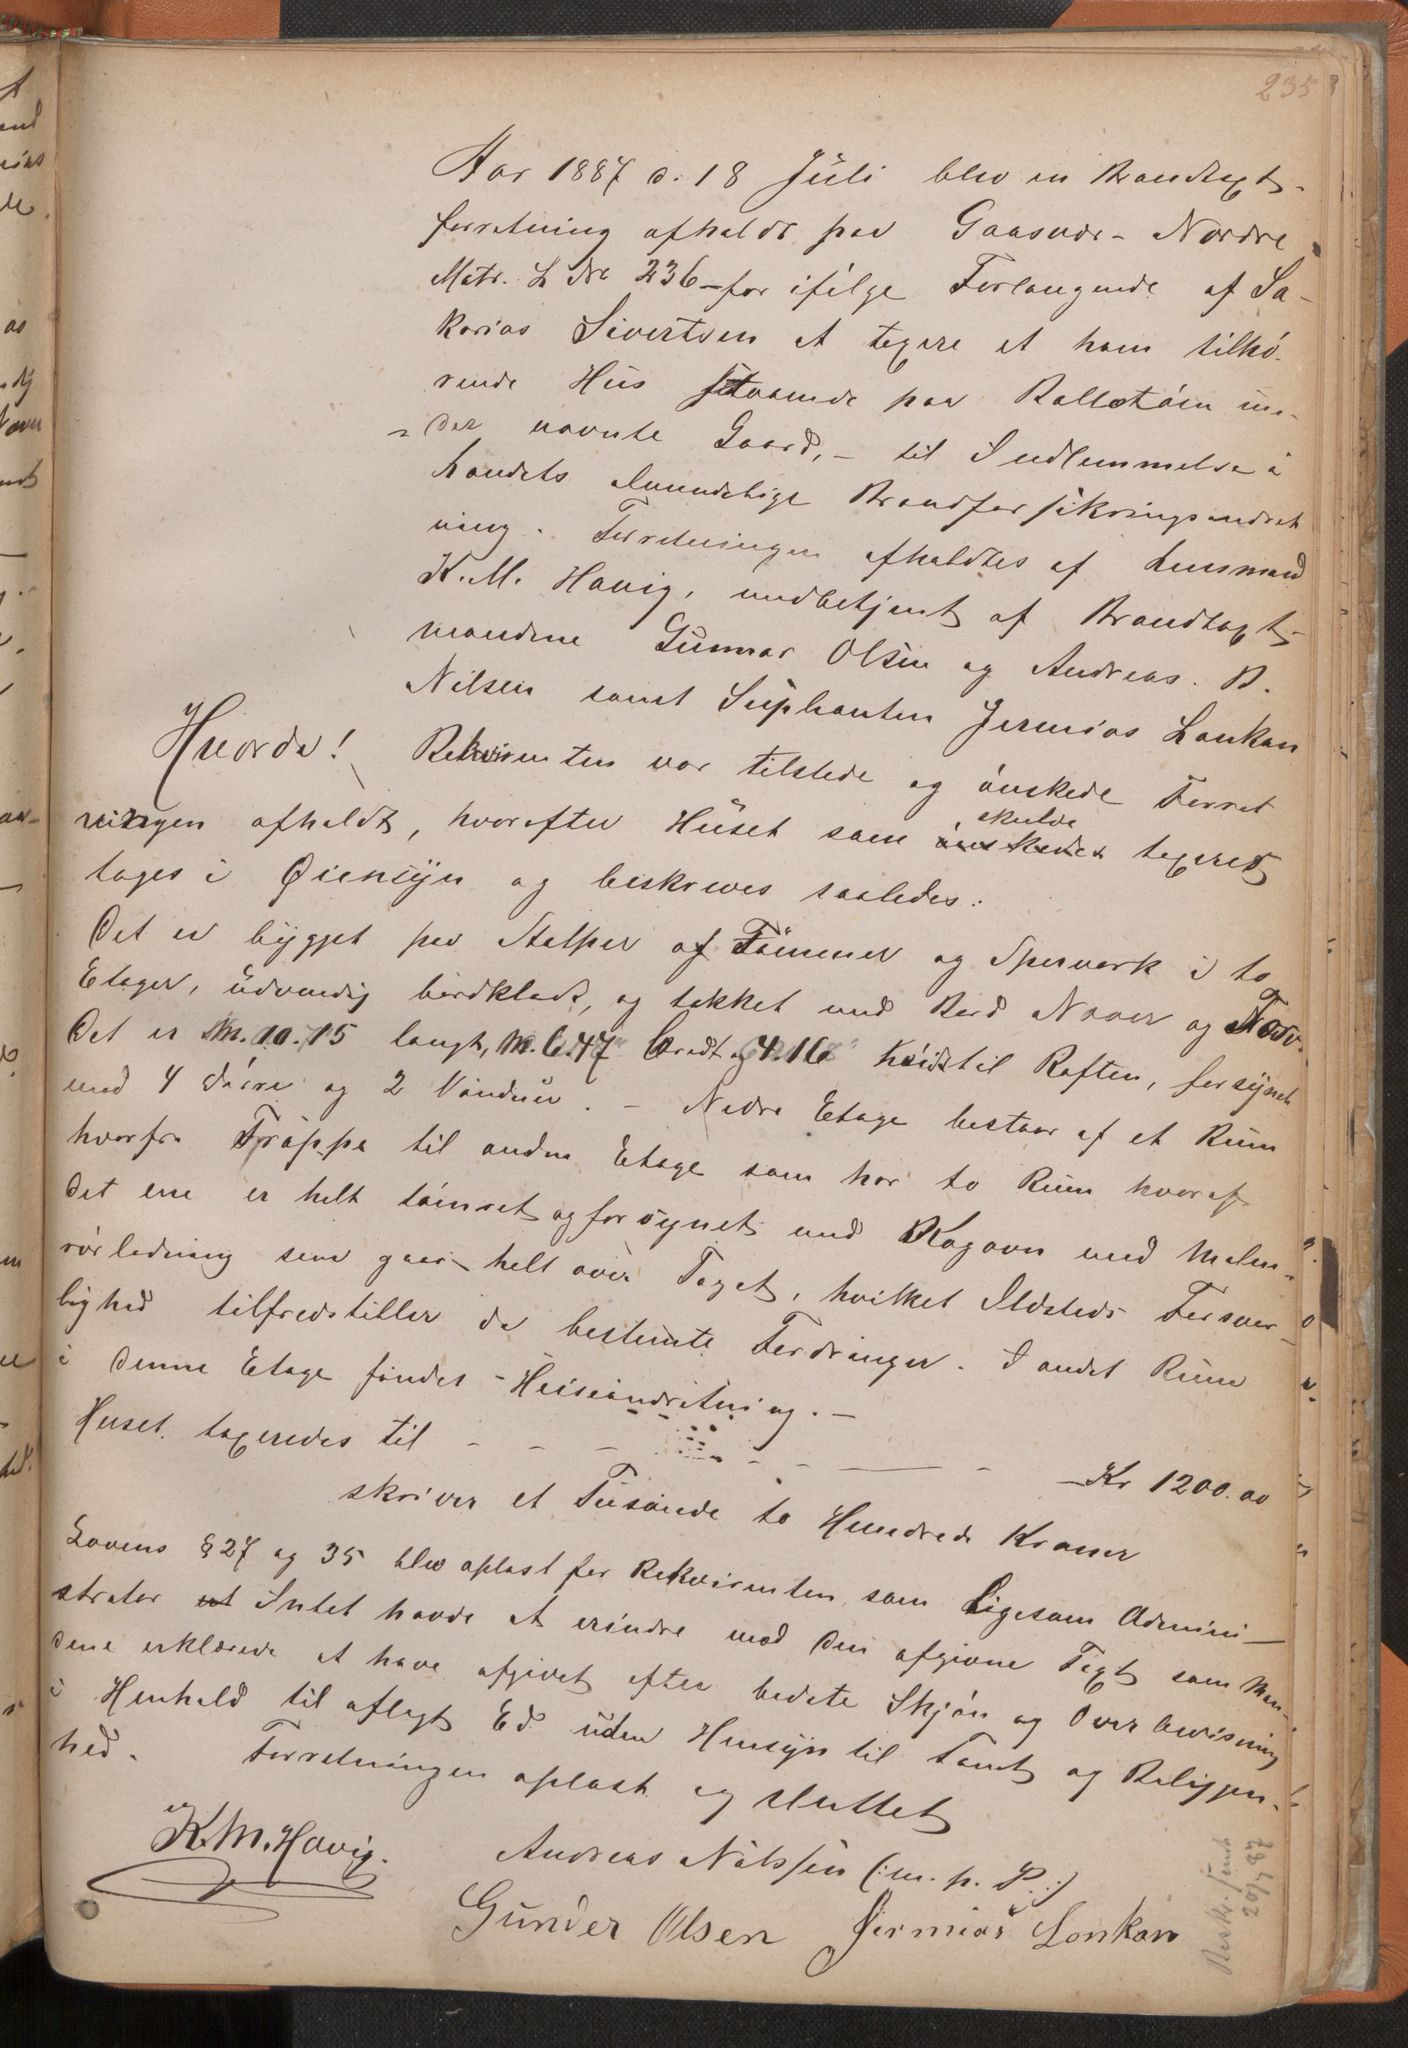 235
Aar 1887 d. 18 Juli blev en Brandtaxt-
forretning afholdt paa Gaasvær- Nordre
Matr. L Nr 236 - for ifölge Forlangende af Sa-
karias Sivertsen at taxere et ham tilhö-
rende Hus staaende paa under
nævnte Gaard, - til Indlemmelse i
Landets almindelige Brandforsikringsindret
ning. Forretningen afholdtes af Lensmand
K. M. Havig, medbetjent af Brandtaxt-
mændene Gunnar Olsen og Andreas. B.
Nilsen samt Suplianten Jermias Lonkan
Hvorda! Rekvirenten var tilstede og önskede Forret
ningen afholdt, hvorefter Huset som skulde taxeres
toges i Øiensyn og beskreves saaledes:
Det er bygget paa Stolper af Tömmer og Sperverk i to
Etager, udvendig bordklædt, og tækket med Bord Næver og Torv.
Det er M. 10.15 langt, M. 6.47 bredt og 4.16 höidt til Raften, forsynet
med 4 Döre og 2 Vinduer. - Nedre Etage bestaar af et Rum
hvorfra Trappe til anden Etage som har to Rum hvoraf
det ene er helt tömret og forsynet med Kogovn med Malm-
rörledning som gaar helt over Taget, hvilket Ildsteds Forsvar-
lighed tilfredstiller de bestemte Fordringer. I andet Rum
i denne Etage findes - Heiseindretning. -
Huset taxeredes til - - - - - - - Kr 1200.00
skriver et Tusinde to Hundrede Kroner
Lovens § 27 og 35 blev oplæst for Rekvirenten, som Ligesom Admini-
strator Intet havde at erindre mod den afgivne Taxt som Mæn-
dene erklærede at have afgivet efter bedste Skjön og Overbevisning
i Henhold til aflagt Ed uden Hensyn til Tomt og Beliggen-
hed. Forretningen oplæst og sluttet
K. M. Havig. Andreas Nilssen (: m. p. P. :)
Gunder Olsen Jermias Lonkan
Beskr. sendt
20/7 87